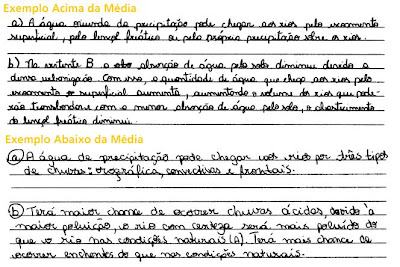 Exemplo Acima da Média
a) A água oriunda da precipitação pode chegar aos rios pelo escoamento
superficial, pelo lençol freático ou pela própria precipitação sobre os rios.
b) Na vertente B a absorção de água pelo solo diminui devido a
densa urbanização. Com isso, a quantidade de água que chega aos rios pelo
escoamento superficial aumenta, aumentando o volume do rios que pode-
rão transbordar e com a menor absorção de água pelo solo, o abastecimento
do lençol freático diminui.
Exemplo Abaixo da Média
a) A água de precipitação pode chegar aos rios por três tipos
de chuvas: orográfica, convectivas e frontais.
b) Terá maior chance de ocorrer chuvas ácidas, devido à
maior poluição, o rio com certeza será mais poluído do
que o rio nas condições naturais (A). Terá mais chance de
ocorrer enchentes do que nas condições naturais.